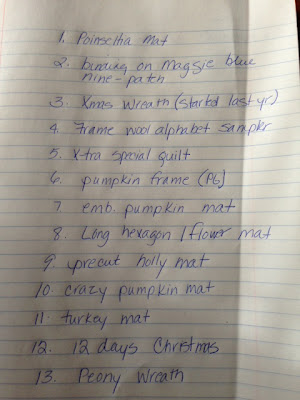 1. Poinsettia mat
2. binding on Maggie blue
nine-patch
3. Xmas Wreath (started last yr)
4. Frame wool alphabet sampler
5. X-tra special quilt
6. pumpkin frame (PG)
7. emb. pumpkin mat
8. Long hexagon / flower mat
9. precut holly mat
10. crazy pumpkin mat
11. turkey mat
12. 12 days Christmas
13. Peony Wreath